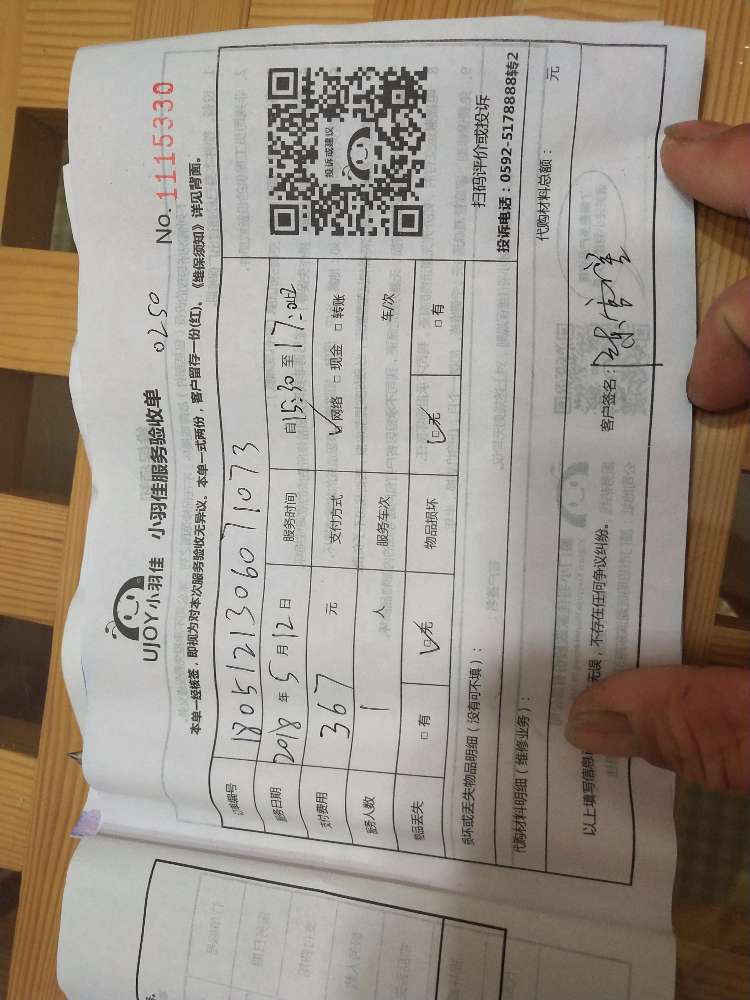 UJOY小羽佳 小羽佳服务验收单 0250 No. 1115330
本单一经核签，即视为对本次服务验收无异议。本单一式两份，客户留存一份(红)、《维保须知》详见背面。
编号 1805121306071073
服务日期 2018 年 5 月 12 日 服务时间 自15:30 至 17:
支付费用 367 元 支付方式 ☑网络 □ 现金 □ 转账
服务人数 1 人 服务车次 车/次
物品丢失 □ 有 ☑无 物品损坏 ☑无 □ 有
投诉或建议
扫码评价或投诉
投诉电话：0592-5178888转2
损坏或丢失物品明细（没有可不填）：
代购材料明细（维修业务）： 代购材料总额： 元
以上填写信息 无误，不存在任何争议纠纷。 客户签名：